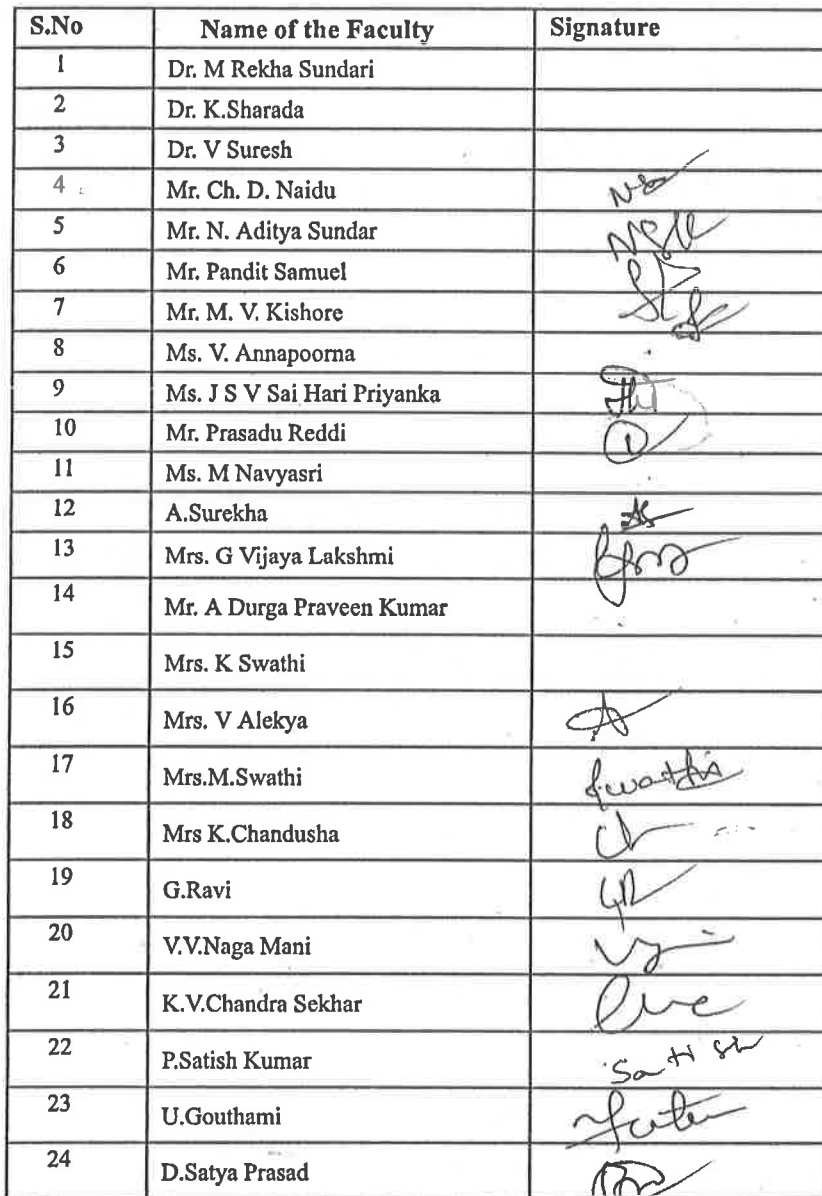 S.No Name of the Faculty Signature
1 Dr. M Rekha Sundari
2 Dr. K.Sharada
3 Dr. V Suresh
4 Mr. Ch. D. Naidu
5 Mr. N. Aditya Sundar
6 Mr. Pandit Samuel
7 Mr. M. V. Kishore
8 Ms. V. Annapoorna
9 Ms. J S V Sai Hari Priyanka
10 Mr. Prasadu Reddi
11 Ms. M Navyasri
12 A.Surekha
13 Mrs. G Vijaya Lakshmi
14 Mr. A Durga Praveen Kumar
15 Mrs. K Swathi
16 Mrs. V Alekya
17 Mrs.M.Swathi Swathi
18 Mrs K.Chandusha
19 G.Ravi
20 V.V.Naga Mani
21 K.V.Chandra Sekhar
22 P.Satish Kumar Satish
23 U.Gouthami
24 D.Satya Prasad